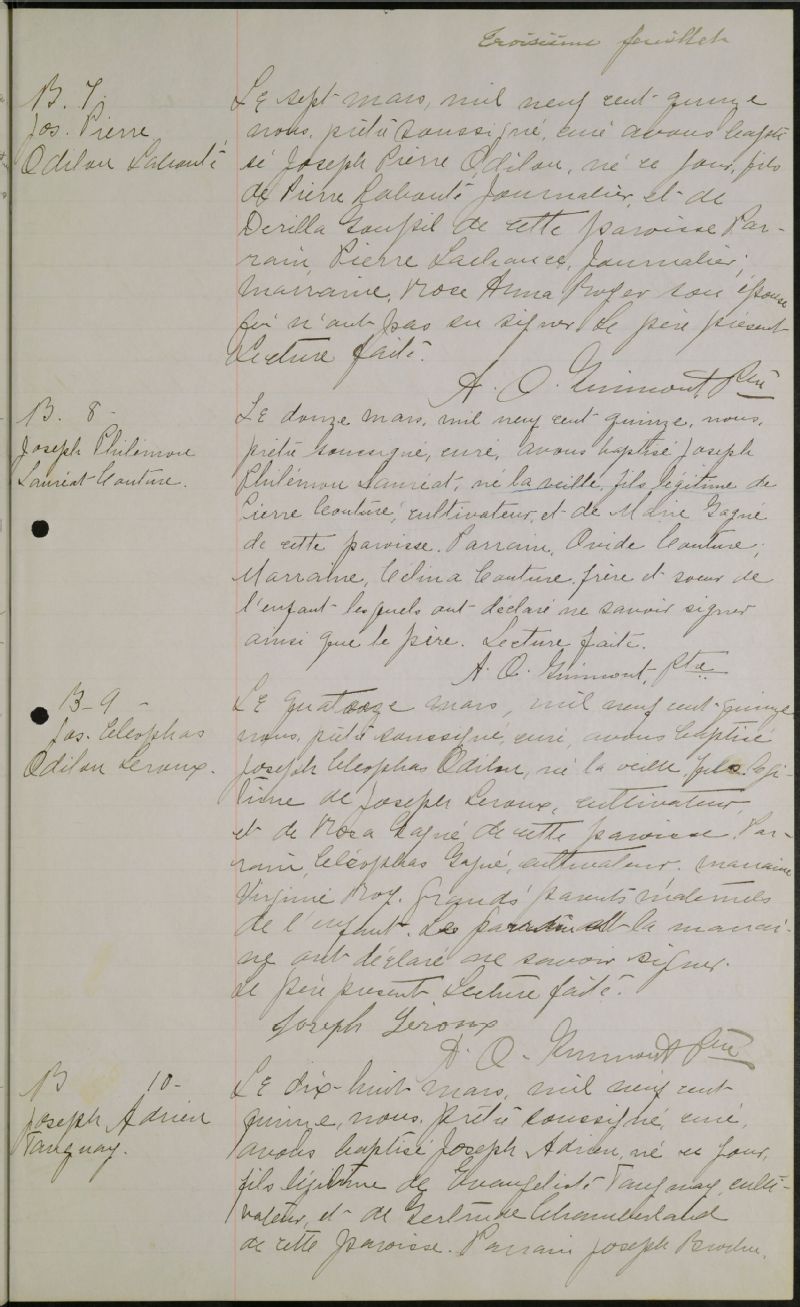 Troisième feuillet
B. 7.
Jos. Pierre
Odilon Labonté
Le sept mars, mil neuf cent quinze
nous, prêtre soussigné, curé avons bapti
sé Joseph Pierre Odilon, né ce jour, fils
de Pierre Labonté journalier, et de
Derilla Goupil de cette paroisse Par-
rain, Pierre Lachance, journalier,
Marraine, Rose Anna Roger son épouse
qui n'ont pas su signer. Le père présent
Lecture faite.
A. O. Guimont Ptre
B. 8 -
Joseph Philémon
Lauréat Couture.
Le douze mars, mil neuf cent quinze, nous,
prêtre soussigné, curé, avons baptisé Joseph
Philémon Lauréat, né la veille, fils légitime de
Pierre Couture, cultivateur, et de Marie Gagné
de cette paroisse. Parrain, Ovide Couture,
Marraine, Célina Couture, frère et soeur de
l'enfant lesquels ont déclaré ne savoir signer
ainsi que le père. Lecture faite.
A. O. Guimont, Ptre
B-9 -
Jos. Cléophas
Odilon Leroux.
Le quatorze mars, mil neuf cent quinze
nous, prêtre soussigné, curé, avons baptisé
Joseph Cléophas Odilon, né la veille, fils légi-
time de Joseph Leroux, cultivateur,
et de Rosa Gagné de cette paroisse. Par-
rain, Cléophas Gagné, cultivateur. marraine
Virginie Roy. Grands parents maternels
de l'enfant. Le parrain et la marrai-
ne ont déclaré ne savoir signer.
Le père présent Lecture faite.
Joseph Leroux
A. O. Guimont Ptre
B 10-
Joseph Adrien
Tanguay.
Le dix-huit mars, mil neuf cent
quinze, nous, prêtre soussigné, curé,
avons baptisé Joseph Adrien, né ce jour,
fils légitime de Evangeliste Tanguay, culti-
vateur, et de Gertrude Chamberland
de cette paroisse. Parrain Joseph Brochu,